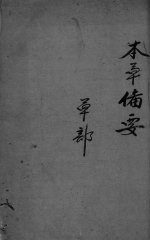 本草備要
草部